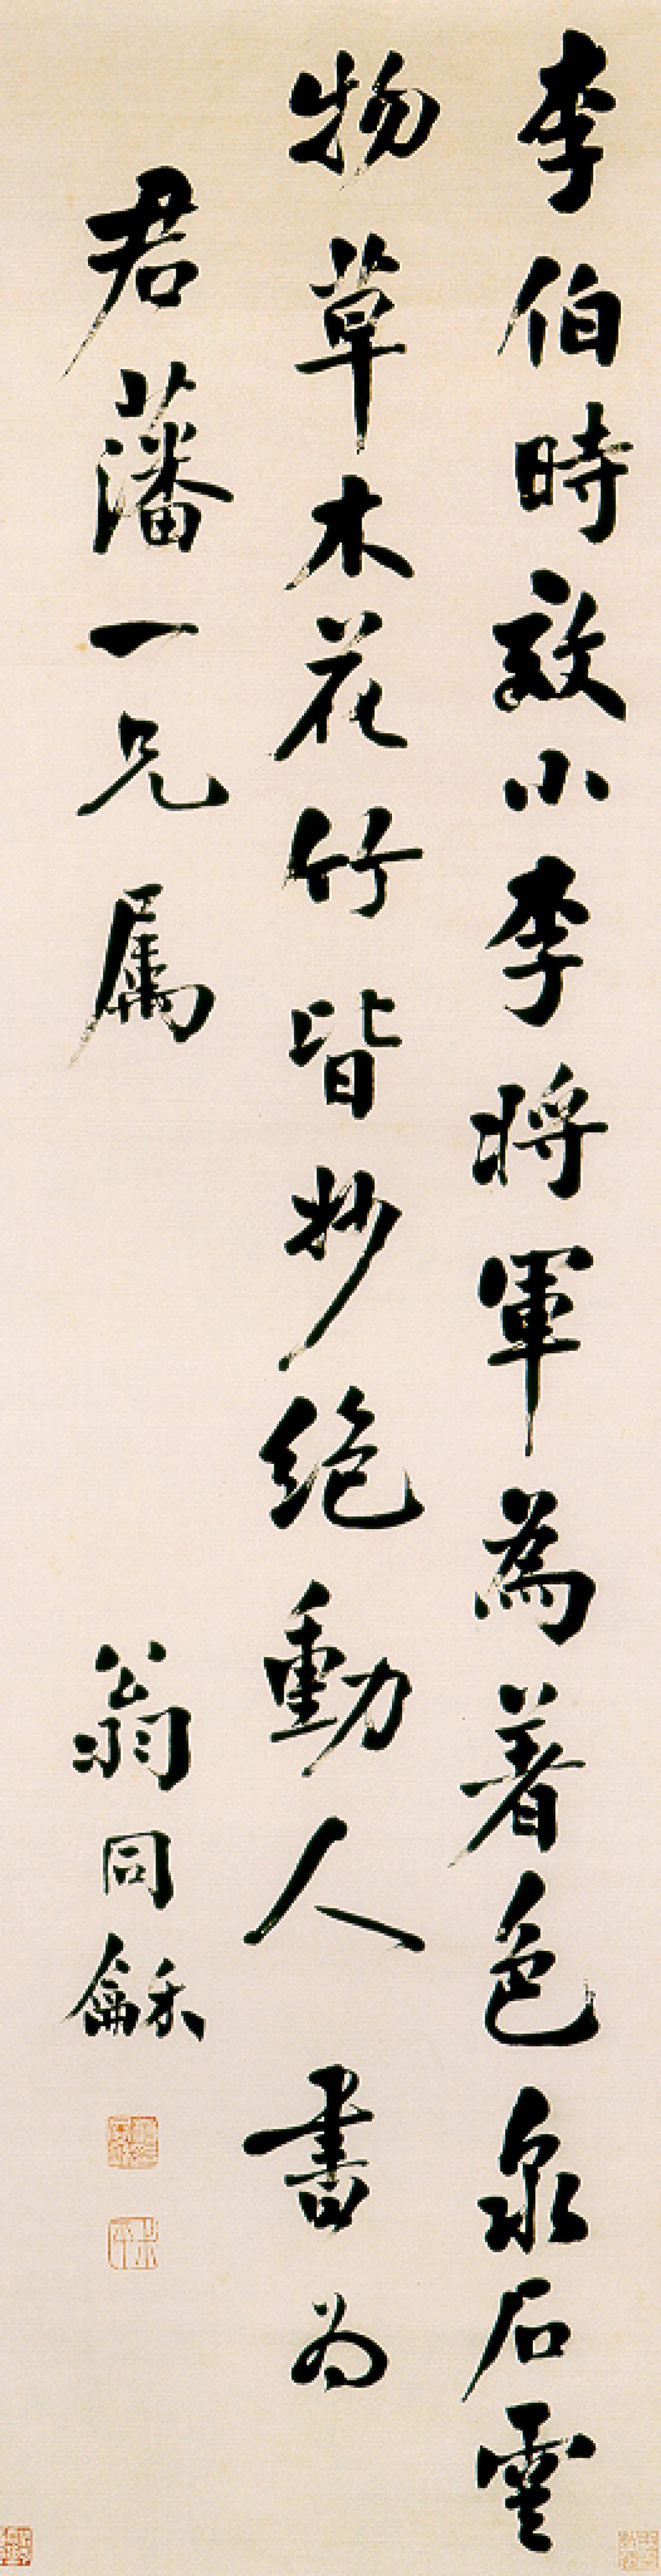 李伯時效小李將軍為著色泉石雲
物草木花竹皆妙絕動人 書為
君藩一兄屬 翁同龢